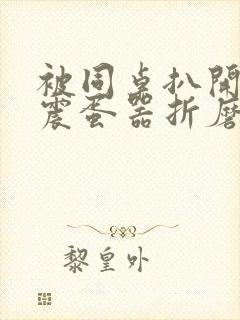 被同桌扒開
震蛋器折磨
黎皇外